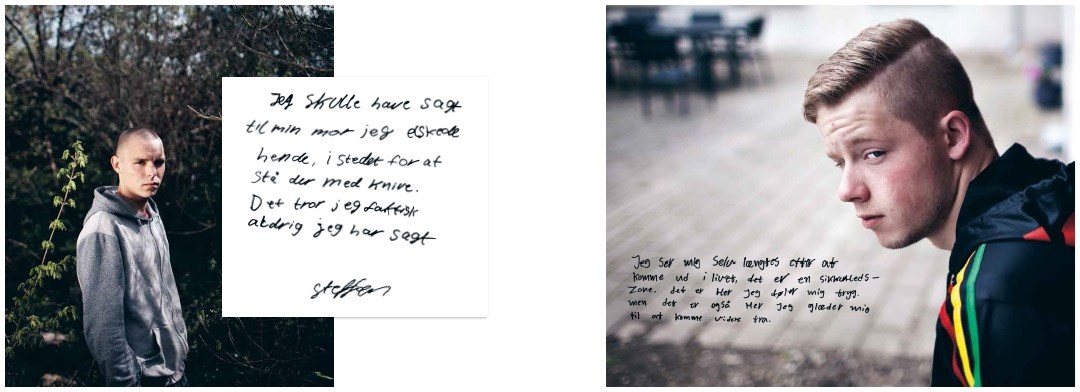 Jeg skulle have sagt
til min mor jeg elskede
hende, i stedet for at
stå der med knive.
Det tror jeg faktisk
aldrig jeg har sagt
Steffen
Jeg ser mig selv længtes efter at
komme ud i livet, det er en sikkerheds-
zone. det er Her jeg føler mig tryg.
men det er også Her jeg glæder mig
til at komme videre fra.